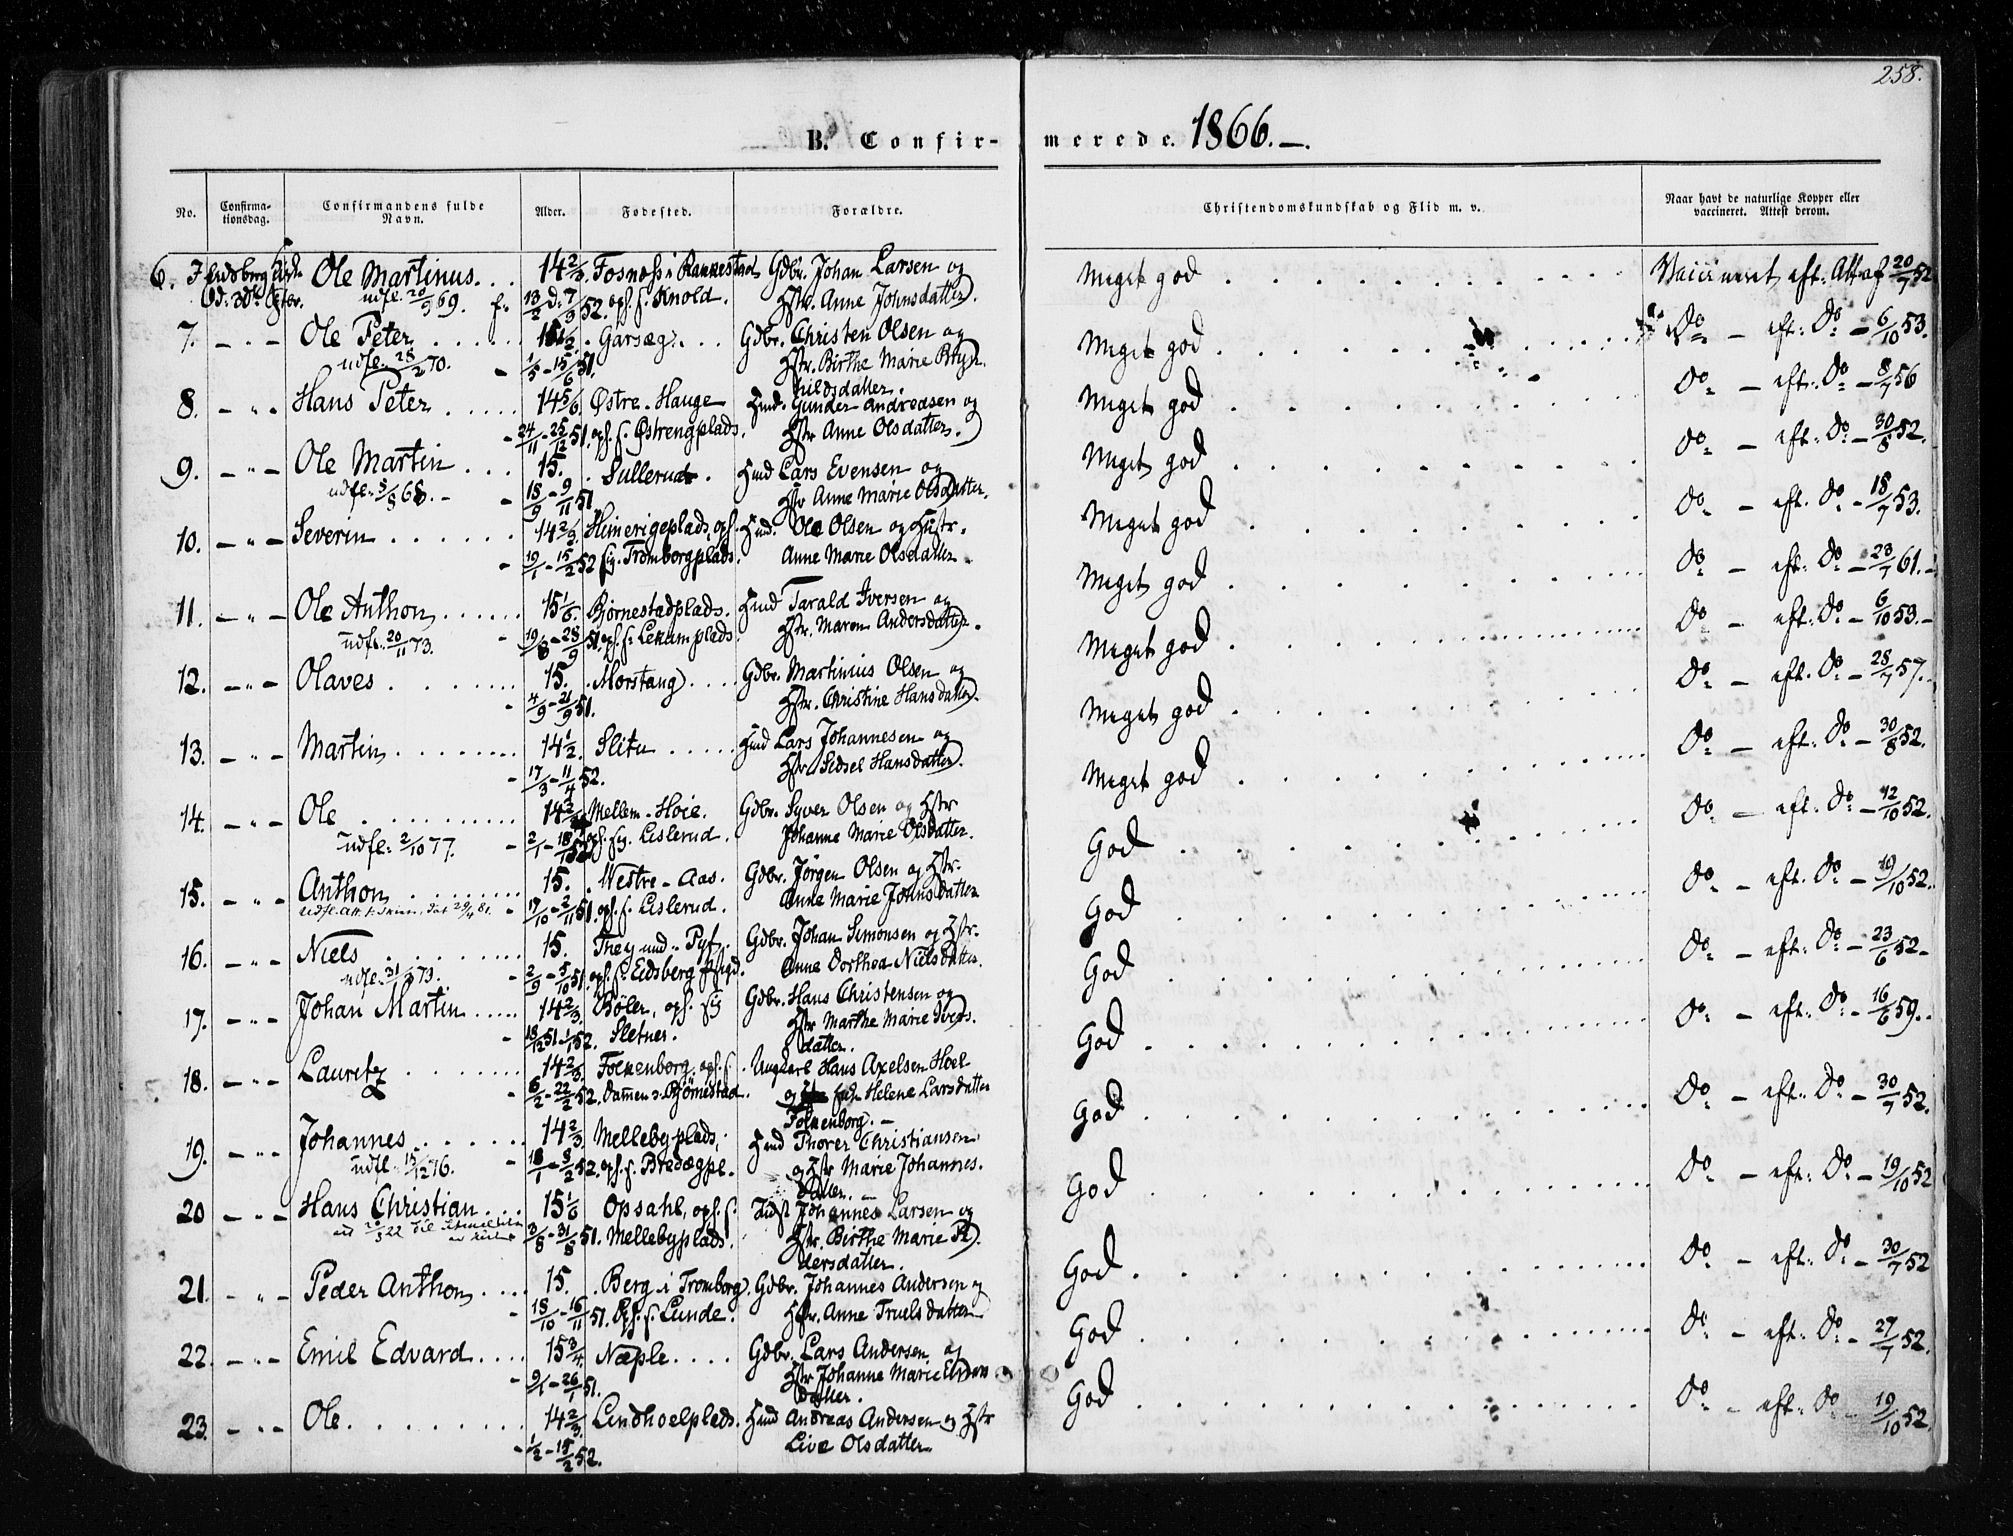 258.
B. Confirmerede. 1866. —.
No. Confirmationsdag. Confirmandens fulde Navn. Alder. Fødested. Forældre. Christendomskundskab og Flid m. v. Naar havt de naturlige Kopper eller vaccineret. Attest derom.
6. I Eidsberg Kirke Ole Martinus. . . 14 2/3. Gdbr. Johan Larsen og Meget god Vaccineret eft. Att. af 20/7 52
udfl. 20/3 69. f. 13/2 d. 7/3 52. ops. f. Knold. Hstr. Anne Johnsdatter.
7. — " — Ole Peter 15 1/2. Garseg. Gdbr. Christen Olsen og Meget god Do — eft. Do — 6/10 53.
udfl. 28/2 70. 1/5 — 15/6 51. Hstr. Birthe Marie
8. — " — Hans Peter 14 5/6. Østre Hauge Hmd. Gunder Andreasen og Meget god Do — eft. Do — 8/7 56
24/11 — 25/12 51. ops. f. Østrengplads. Hstr. Anne Olsdatter.
9. — " — Ole Martin 15. Sullerud. Hmd Lars Evensen og Meget god Do — eft. Do — 30/8 52.
18/9 — 9/11 51. Hstr Anne Marie Olsdatter.
10. — " — Severin 14 2/9. ops. Hmd. Ole Olsen og Hustr. Meget god Do — eft. Do — 18/7 53.
19/1 — 15/2 52 sig. Tromborgplads. Anne Marie Olsdatter.
11. — " — Ole Anthon 15 1/6. Bjørnestadplads. Hmd Tarald Iversen og Meget god Do — eft. Do — 23/7 61.
udfl. 20/11 73. 19/8 — 28/9 51. ops. f. Lekumplads. Hstr. Maren Andersdatter.
12. — " — Olaves 15. Morstang Gdbr. Martinius Olsen og Meget god Do — eft. Do — 6/10 53.
4/9 — 21/9 51. Hstr. Christine Hansdatter.
13. — " — Martin 14 1/2. Slitu Hmd Lars Johannesen og Meget god Do — eft. Do — 28/7 57.
17/3 — 11/4 52. Hstr Sidsel Hansdatter.
14. — " — Ole 14 Mellem-Høie. Gdbr. Syver Olsen og Hstr Meget god Do — eft. Do — 30/8 52.
udfl. 2/10 77. 2/1 — 18/1 52 ops. sig. Lislerud. Johanne Marie Olsdatter.
15. — " — Anthon 15. Westre-Aas. Gdbr. Jørgen Olsen og Hstr. God Do — eft. Do — 12/10 52.
17/10 — 2/11 51. ops. f. Lislerud. Anne Marie Johnsdatter
16. — " — Niels 15. Gdbr. Johan Simonsen og Hstr. God Do — eft. Do — 19/10 52.
2/9 — 5/10 51. ops. f. Eidsberg Anne Dorthea Nielsdatter.
17. — " — Johan Martin 14 2/3. Bøler, ops. sig Gdbr. Hans Christensen og God Do — eft. Do — 23/6 52
18/12 51 — 1/1 52. Sletner. Hstr Marthe Marie Iversdatter.
18. — " — Lauritz 14 2/3. Folkenborg, ops. f. Ungkarl Hans Axelsen Hoel God Do — eft. Do — 16/6 59.
6/2 — 22/2 52. Bjørnestad. og Helene Larsdatter
Folkenborg. —
19. — " — Johannes 14 2/3. Mellebyplads, Hmd Thorer Christiansen God Do — eft. Do — 30/7 52.
udfl. 15/12 76. 18/1 — 8/2 52. ops. f. Bredægpl. og Hstr Marie Johannesdatter. —
20 — " — Hans Christian 15 1/6 Opsahl, ops. f. Johannes Larsen og God Do — eft. Do — 19/10 52
3/8 — 31/8 51. Mellebyplads. Hstr. Birthe Marie Pedersdatter.
21. — " — Peder Anthon 15. Berg i Tromborg. Gdbr. Johannes Andersen og God Do — eft. Do — 30/7 52
18/10 — 16/11 51. Ops. f. Lunde. Hstr. Anne Truelsdatter
22. — " — Emil Edvard 15 3/4. Næple. Gdbr. Lars Andersen og God Do — eft. Do — 27/7 52.
9/1 — 26/1 51. Hstr Johanne Marie
datter.
23. — " — Ole. 14 2/3. Lindhoelplads. Hmd Andreas Andersen og Hstr God Do — eft. Do — 19/10 52
1/2 — 15/2 52. Live Olsdatter